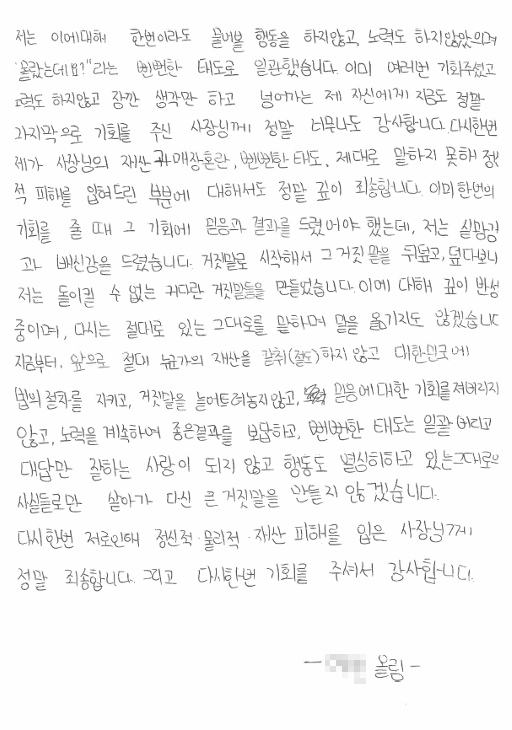 저는 이에대해 한번이라도 물어볼 행동을 하지않고, 노력도 하지않았으며
"몰랐는데요?"라는 뻔뻔한 태도로 일관했습니다. 이미 여러번 기회주셨고
노력도 하지않고 잠깐 생각만 하고 넘어가는 제 자신에게 지금도 정말
마지막으로 기회를 주신 사장님께 정말 너무나도 감사합니다. 다시한번
제가 사장님의 재산과 매장혼란, 뻔뻔한 태도, 제대로 말하지 못해 정신
적 피해를 입혀드린 부분에 대해서도 정말 깊이 죄송합니다. 이미 한번의
기회를 줄 때 그 기회에 믿음과 결과를 드렸어야 했는데, 저는 실망감
과 배신감을 드렸습니다. 거짓말로 시작해서 그 거짓말을 뒤덮고, 덮다보니
저는 돌이킬 수 없는 커다란 거짓말들을 만들었습니다. 이에 대해 깊이 반성
중이며, 다시는 절대로 있는 그대로를 말하며 말을 옮기지도 않겠습니다
지금부터, 앞으로 절대 누군가의 재산을 갈취(절도)하지 않고 대한민국에
법의 절차를 지키고, 거짓말을 늘어트려놓지않고, 믿음에 대한 기회를 져버리지
않고, 노력을 계속하여 좋은결과를 보답하고, 뻔뻔한 태도는 일괄 버리고
대답만 잘하는 사람이 되지 않고 행동도 열심히하고 있는그대로의
사실들로만 살아가 다신 큰 거짓말을 만들지 않겠습니다.
다시한번 저로인해 정신적·물리적·재산 피해를 입은 사장님께
정말 죄송합니다. 그리고 다시한번 기회를 주셔서 감사합니다.
- 올림 -